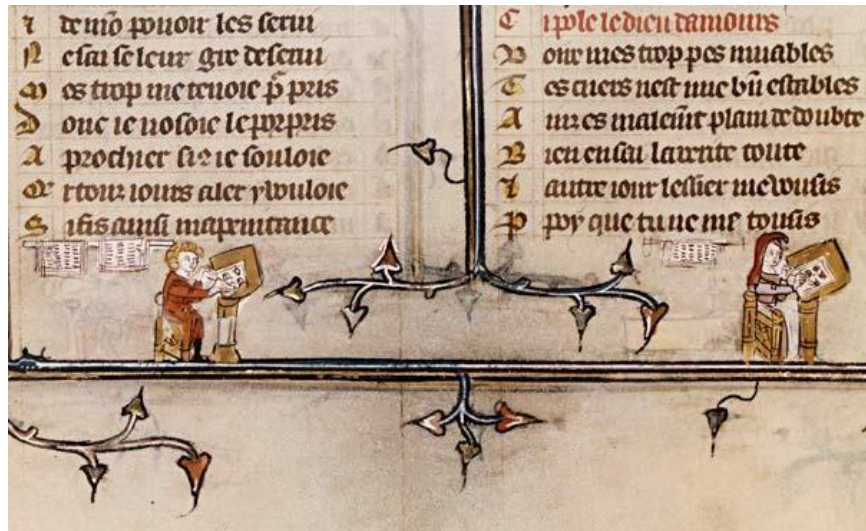 I de mō pouoir les serui
N e sai se leur gre deserui
M es trop me tenoie p̄ pris
D onc ie nosoie le porpris
A prochier si ie souloie
touz iours aler y vouloie
S i fis ainsi ma penitance
C i pole le dieu damours
mes trop pes muables
T es cuers nest mie bn̄ estables
A malemt̄ plain de doubte
B ien en sai la verite toute
L autre iour lessier me vousis
P poy que tu ne me tousis